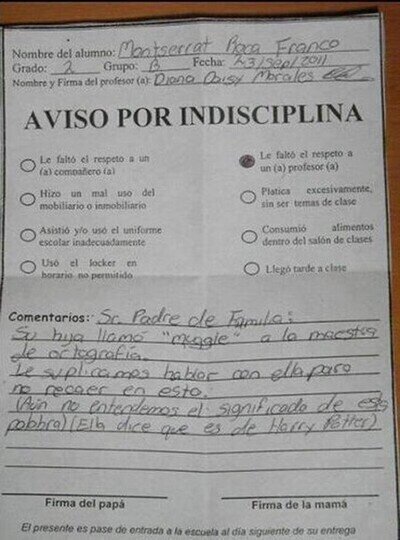 Nombre del alumno: Montserrat Roca Franco
Grado: 2 Grupo: B Fecha: 23/Sep/2011
Nombre y Firma del profesor (a): Diana Daisy Morales
AVISO POR INDISCIPLINA
Le faltó el respeto a un
(a) compañero (a)
Hizo un mal uso del
mobiliario o inmobiliario
Asistió y/o usó el uniforme
escolar inadecuadamente
Usó el locker en
horario no permitido
Le faltó el respeto a
un (a) profesor (a)
Platica excesivamente,
sin ser temas de clase
Consumió alimentos
dentro del salón de clases
Llegó tarde a clase
Comentarios: Sr. Padre de Familia:
Su hija llamo "muggle" a la maestra
de ortografía.
Le suplicamos hablar con ella para
no recaer en esto.
(Aún no entendemos el significado de esta
palabra) (Ella dice que es de Harry Potter)
Firma del papá
Firma de la mamá
El presente es pase de entrada a la escuela al día siguiente de su entrega